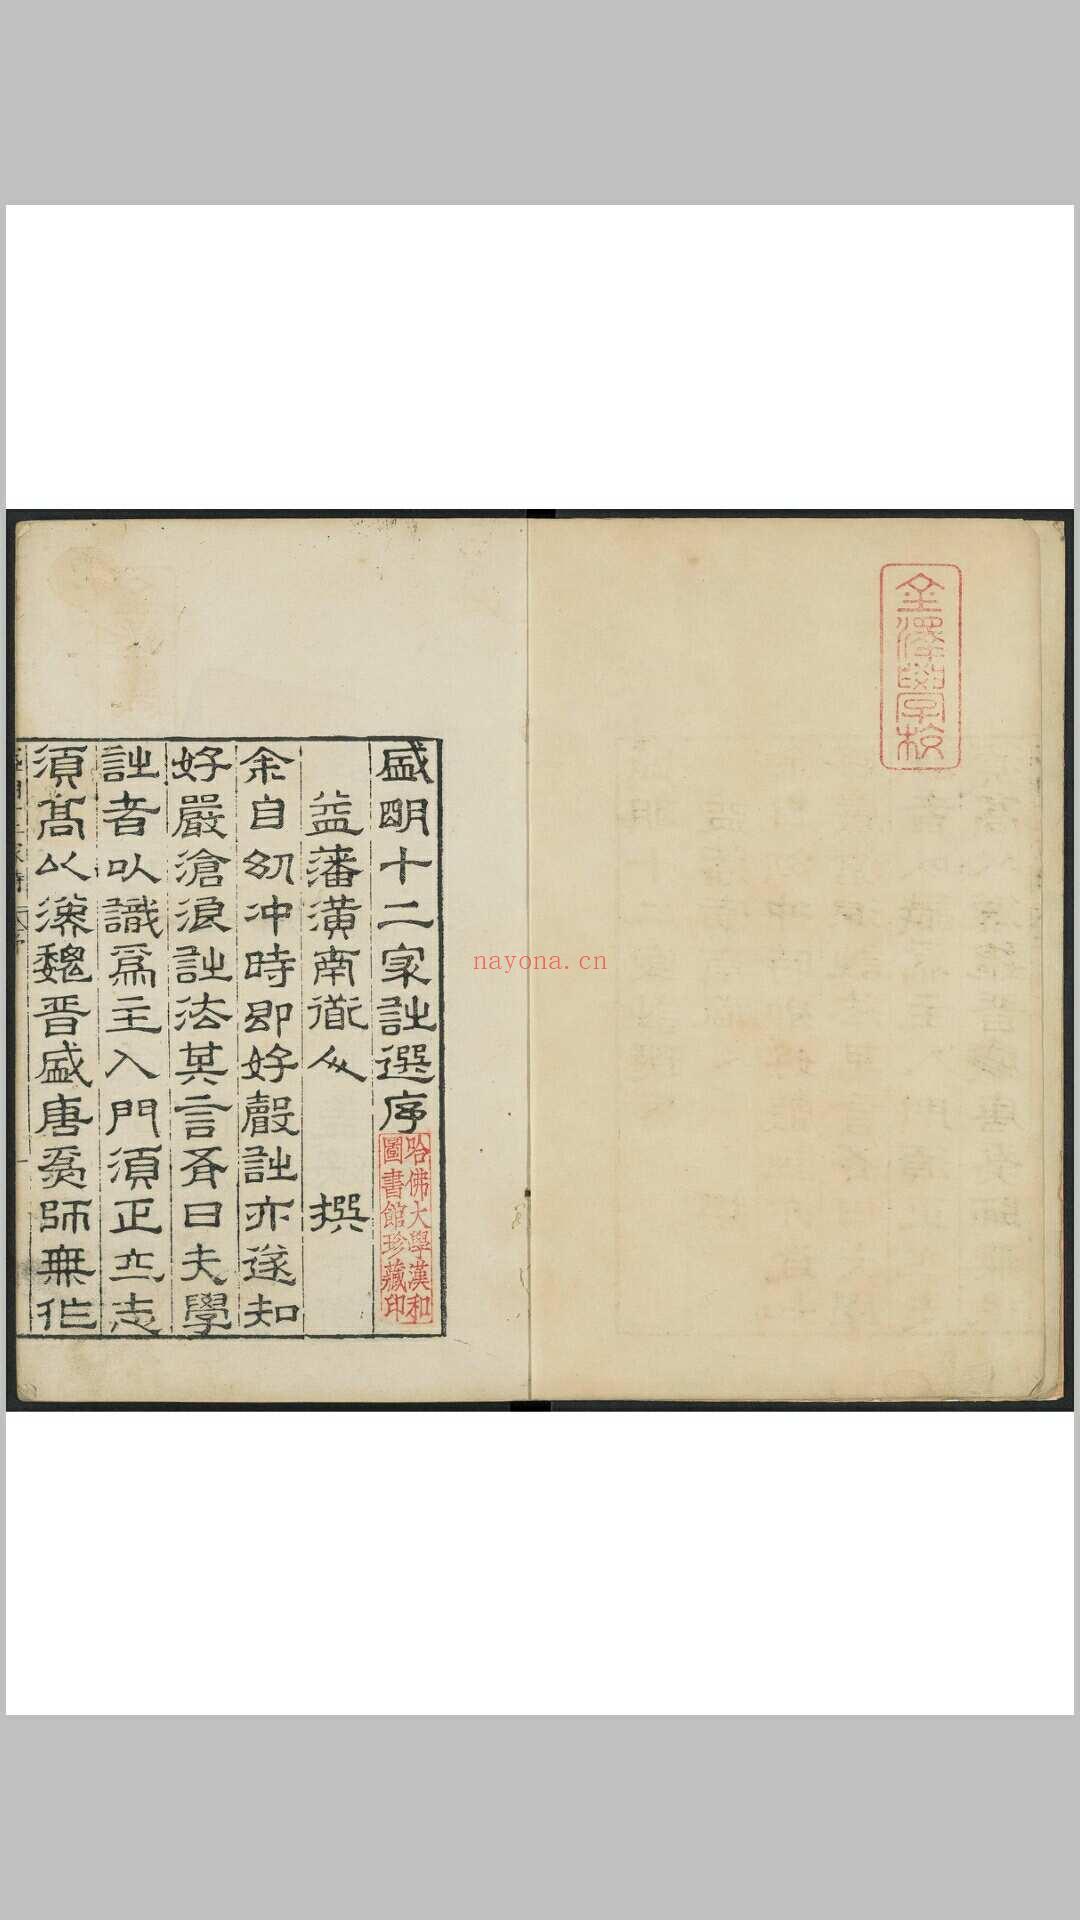 金澤學校
盛明十二家詩選序
哈佛大學漢和
圖書館珍藏印
益藩潢南道人 撰
余自幼冲時即好聲詩亦遂知
好嚴滄浪詩法其言有曰夫學
詩者以識爲主入門須正立志
須高以漢魏晉盛唐爲師無作
nayona.cn